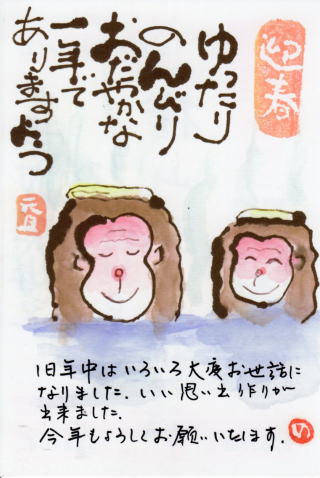 迎春
ゆったり
のんびり
おだやかな
一年で
ありますよう
元旦
旧年中はいろいろ大変お世話に
なりました。いい思い出作りが
出来ました。
今年もよろしくお願いいたします。
の